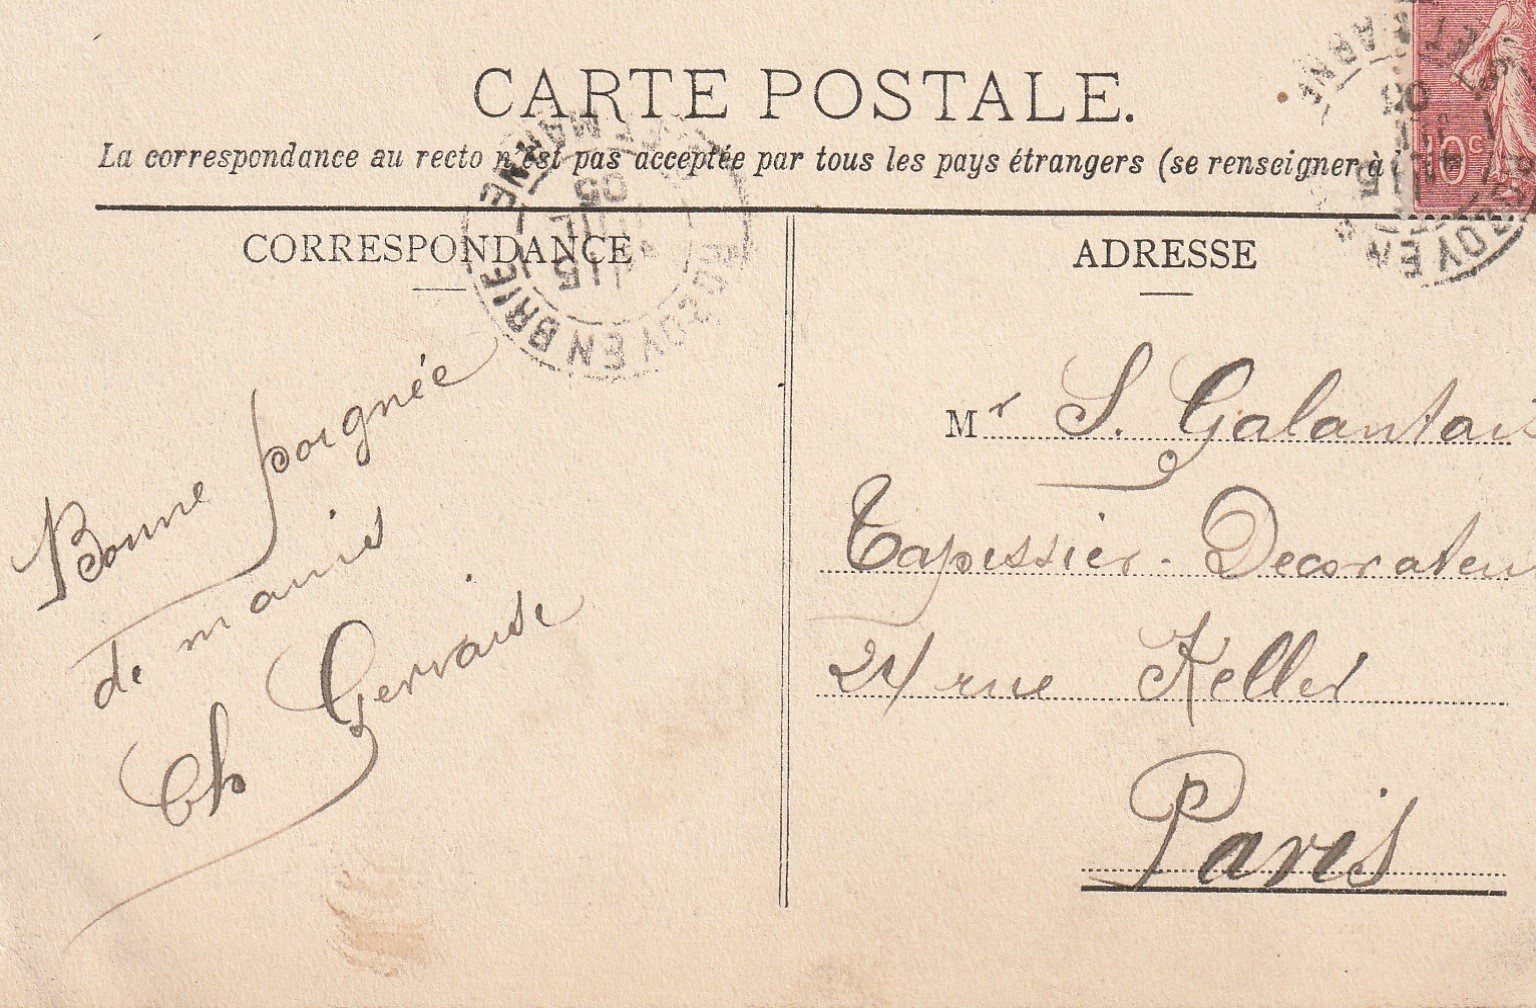 CARTE POSTALE.
La correspondance au recto n'est pas acceptée par tous les pays étrangers (se renseigner à
CORRESPONDANCE
ADRESSE
Bonne poignée
de mains
Ch Gervaise
Mr S. Galantais
Tapissier - Decorateu
24 rue Keller
Paris
ROZOY EN BRIE
SEINE-ET-MARNE
JUIL
05
10c